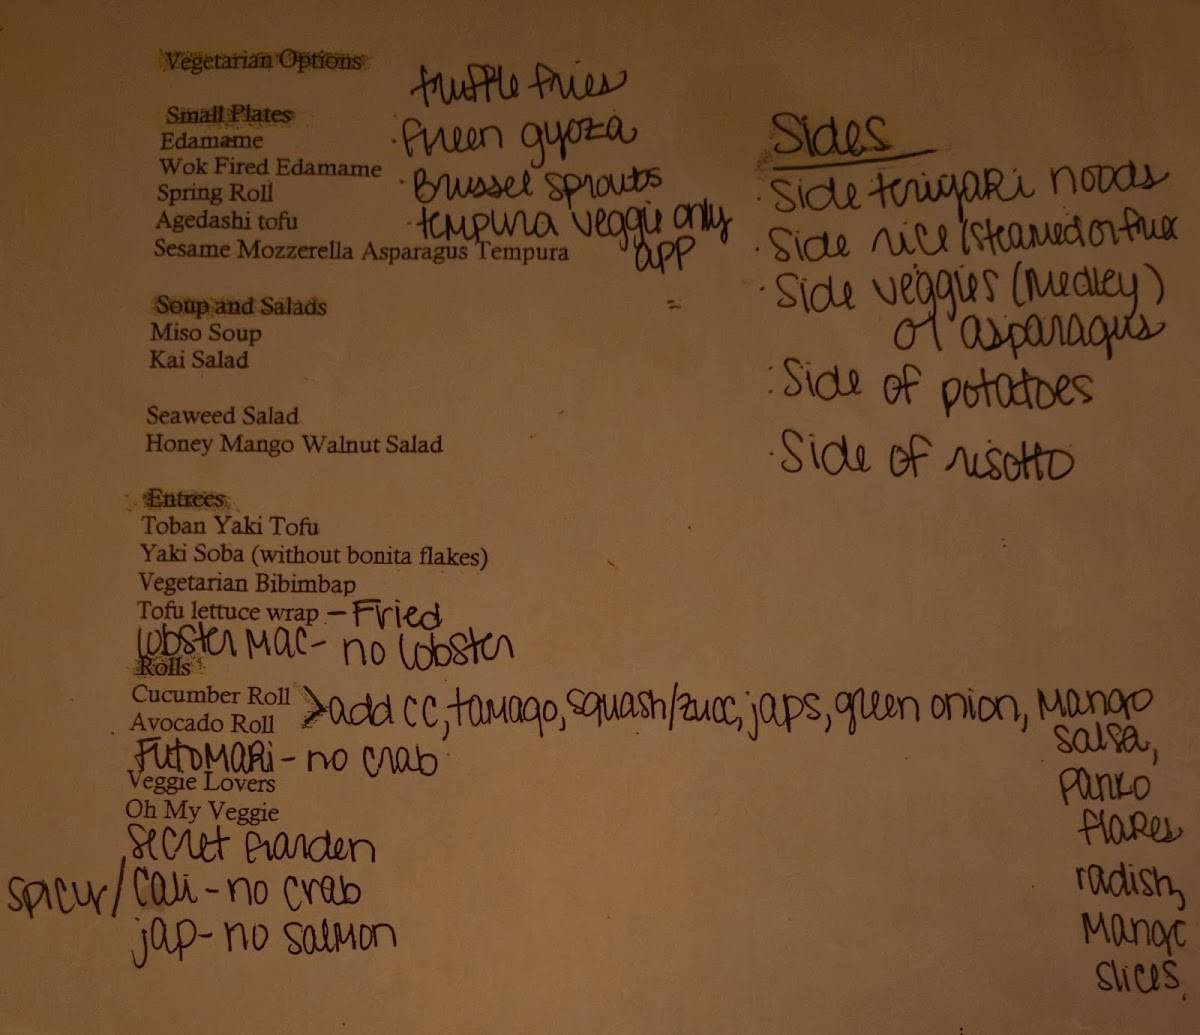 Vegetarian Options
truffle fries
Small Plates
Edamame
· Green gyoza
Wok Fired Edamame
· Brussel sprouts
Spring Roll
Agedashi tofu
· tempura veggie only
app
Sesame Mozzerella Asparagus Tempura
Sides
· Side teriyaki noods
· Side rice (steamed or fried
· Side veggies (medley)
or asparagus
: Side of potatoes
· Side of risotto
Soup and Salads
Miso Soup
Kai Salad
Seaweed Salad
Honey Mango Walnut Salad
Entrees
Toban Yaki Tofu
Yaki Soba (without bonita flakes)
Vegetarian Bibimbap
Tofu lettuce wrap - Fried
lobster mac- no lobster
Rolls
Cucumber Roll
Avocado Roll
>add cc, tamago, squash/zucc, japs, green onion, mango
salsa,
panko
flakes
radish,
mango
slices.
FUTOMAKi - no crab
Veggie Lovers
Oh My Veggie
secret garden
spicy/cali - no crab
jap- no salmon